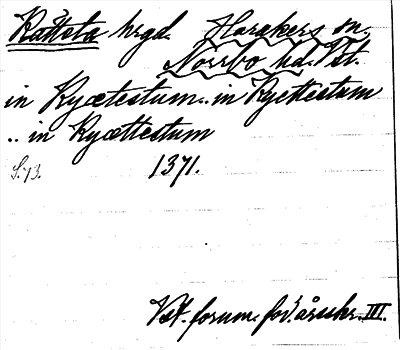 Kättsta hrgd. Harakers sn.
Norrbo hd. Vst.
in Kyætestum .. in Kyettestum
.. in Kyættestum
S. 73. 1371.
Vst. fornm. för. årsskr. III.